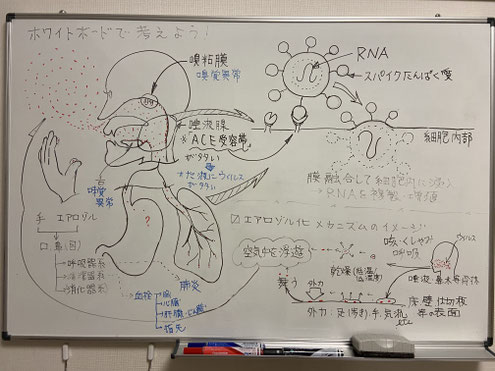 ホワイトボードで考えよう!
嗅粘膜
嗅覚異常
唾液腺
※ACE受容体
が多い
が多い
味覚
異常
手 エアロゾル
口、鼻(目)
呼吸器系
消化器系
肺炎
血栓
脳
心臓
指先
RNA
スパイクたんぱく質
細胞内部
膜融合して細胞内に
→RNAを複製・増殖
エアロゾル化メカニズムのイメージ
空気中を浮遊
咳・くしゃみ
ウィルス
乾燥(低湿度)
舞う
外力
外力:足(歩き)、手、気流
etc
床、壁、仕切板
等の表面